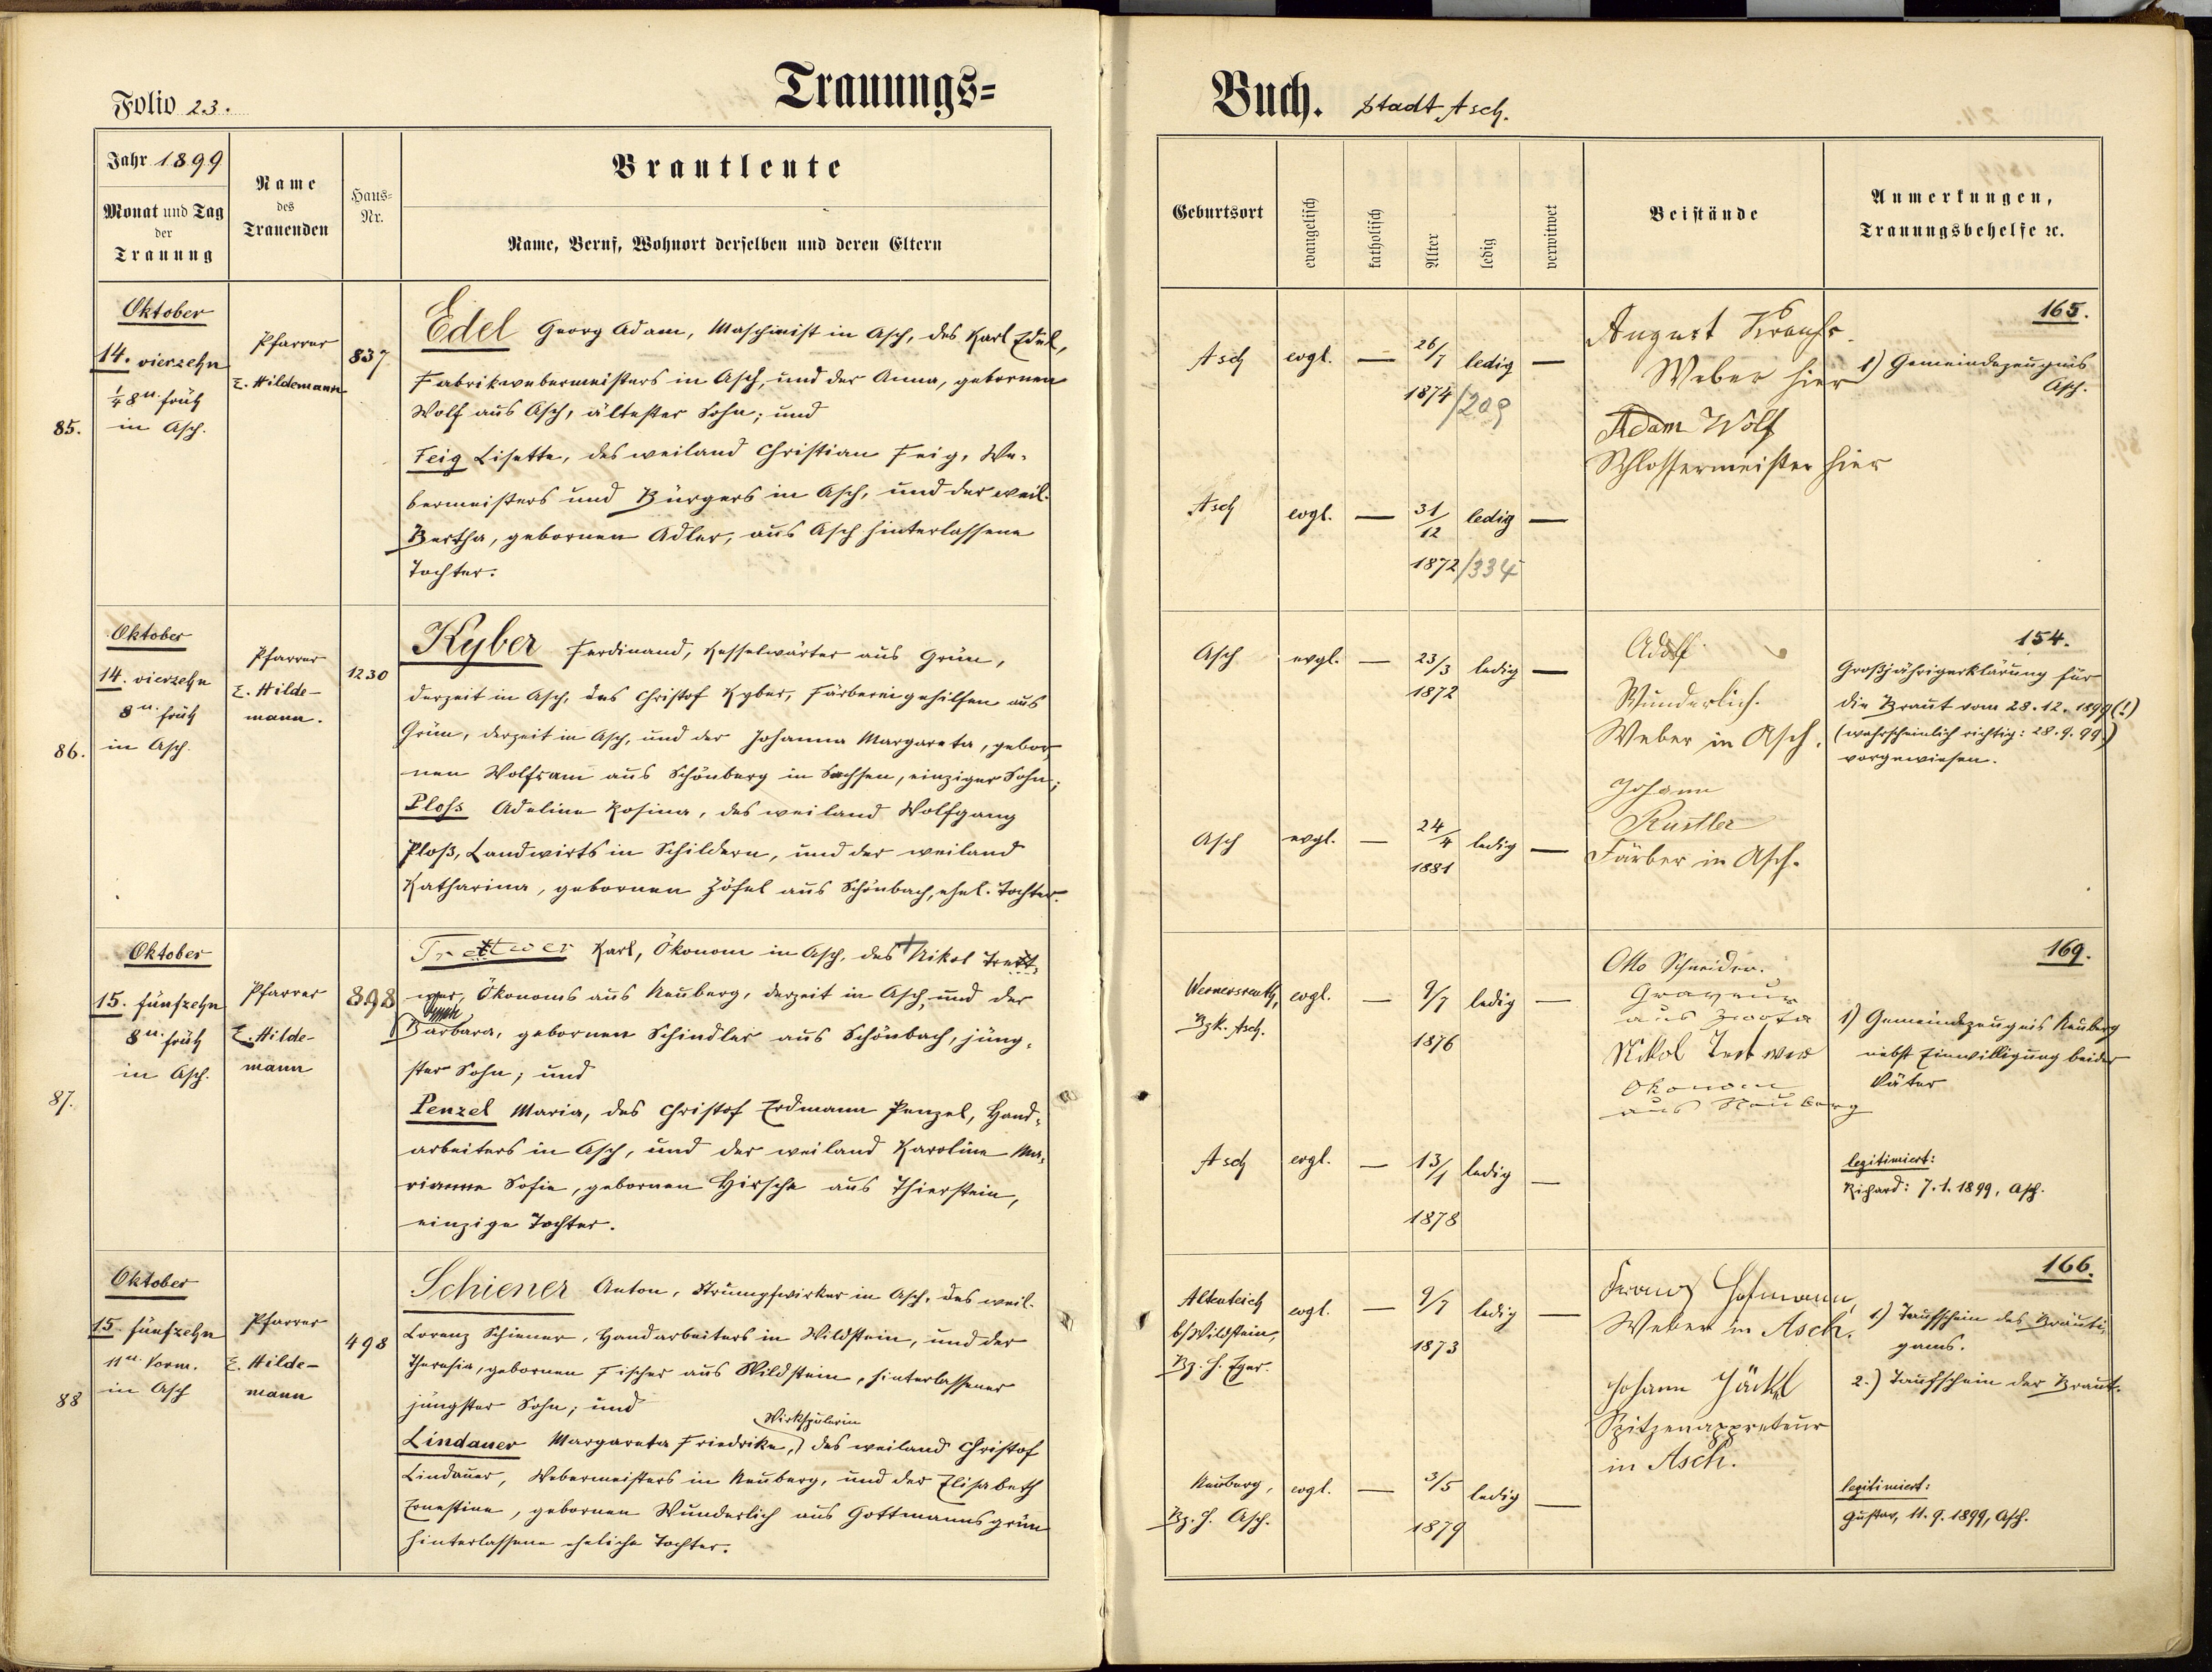 Trauungs=
Folio 23.
Jahr 1899
Monat und Tag
der
Trauung
Name
des
Trauenden
Haus=
Nr.
Brautleute
Name, Beruf, Wohnort derselben und deren Eltern
85.
Oktober
14. vierzehn
1/4 8 u. früh
in Asch.
Pfarrer
E. Hildemann
837
Edel Georg Adam, Maschinist in Asch, des Karl Edel,
Fabrikwebermeisters in Asch, und der Anna, gebornen
Wolf aus Asch, ältester Sohn; und
Feig Lisette, des weiland Christian Feig, We-
bermeisters und Bürgers in Asch, und der weil.
Bertha, gebornen Adler, aus Asch hinterlassene
Tochter.
86.
Oktober
14. vierzehn
8 u. früh
in Asch.
Pfarrer
E. Hilde-
mann.
1230
Kyber Ferdinand, Kesselwärter aus Grün,
derzeit in Asch, des Christof Kyber, Färbereigehilfen aus
Grün, derzeit in Asch, und der Johanna Margareta, gebor-
nen Wolfram aus Schönberg in Sachsen, einziger Sohn;
Ploss Adeline Rosina, des weiland Wolfgang
Ploß, Landwirts in Schildern, und der weiland
Katharina, gebornen Höfel aus Schönbach, ehel. Tochter.
87.
Oktober
15. fünfzehn
8 u. früh
in Asch.
Pfarrer
E. Hilde-
mann
898
Trettwer Karl, Ökonom in Asch, des Nikol Trett-
wer, Ökonoms aus Neuberg, derzeit in Asch, und der
Barbara, gebornen Schindler aus Schönbach, jüng-
ster Sohn; und
Penzel Maria, des Christof Erdmann Penzel, Hand-
arbeiters in Asch, und der weiland Karoline Ma-
rianne Sofie, gebornen Hirsche aus Thierstein,
einzige Tochter.
88
Oktober
15. fünfzehn
11 u. Vorm.
in Asch
Pfarrer
E. Hilde-
mann
498
Schiener Anton, Strumpfwirker in Asch, des weil.
Lorenz Schiener, Handarbeiters in Wildstein, und der
Theresia, gebornen Fischer aus Wildstein, hinterlassener
jüngster Sohn; und
Wirkspulerin
Lindauer Margareta Friedrike, des weiland Christof
Lindauer, Webermeisters in Neuberg, und der Elisabeth
Ernestine, gebornen Wunderlich aus Gottmannsgrün
hinterlassene eheliche Tochter.
Buch. Stadt Asch.
Geburtsort
evangelisch
katholisch
Alter
ledig
verwitwet
Beistände
Anmerkungen,
Trauungsbehelfe ec.
Asch evgl. — 26/7 ledig —
1874 /209
August Krauhs.
Weber hier
Adam Wolf
Schlossermeister hier
165.
1) Gemeindezeugnis
Asch.
Asch evgl. — 31/12 ledig —
1872 /334
Asch evgl. — 23/3 ledig —
1872
Adolf
Wunderlich.
Weber in Asch.
Johann
Rustler
Färber in Asch.
154.
Großjährigerklärung für
die Braut vom 28.12.1899 (!)
(wahrscheinlich richtig: 28.9.99.)
vorgewiesen.
Asch evgl. — 24/4 ledig —
1881
Wernersreuth, evgl. — 9/7 ledig —
Bzk. Asch.
1876
Otto Schneider.
Graveur
aus Zwota
Nikol Trettwer
Ökonom
aus Neuberg
169.
1) Gemeindezeugnis Neuberg
nebst Einwilligung beider
Väter
Asch evgl. — 13/1 ledig —
1878
legitimiert:
Richard: 7.1.1899, Asch.
Altenteich evgl. — 9/7 ledig —
b/Wildstein,
Bz. H. Eger.
1873
Franz Hofmann,
Weber in Asch.
Johann Jäckel
Spitzenappreteur
in Asch.
166.
1) Taufschein des Bräuti-
gams.
2.) Taufschein der Braut.
Neuberg, evgl. — 3/5 ledig —
Bz. H. Asch.
1879
legitimiert:
Gustav, 11.9.1899, Asch.